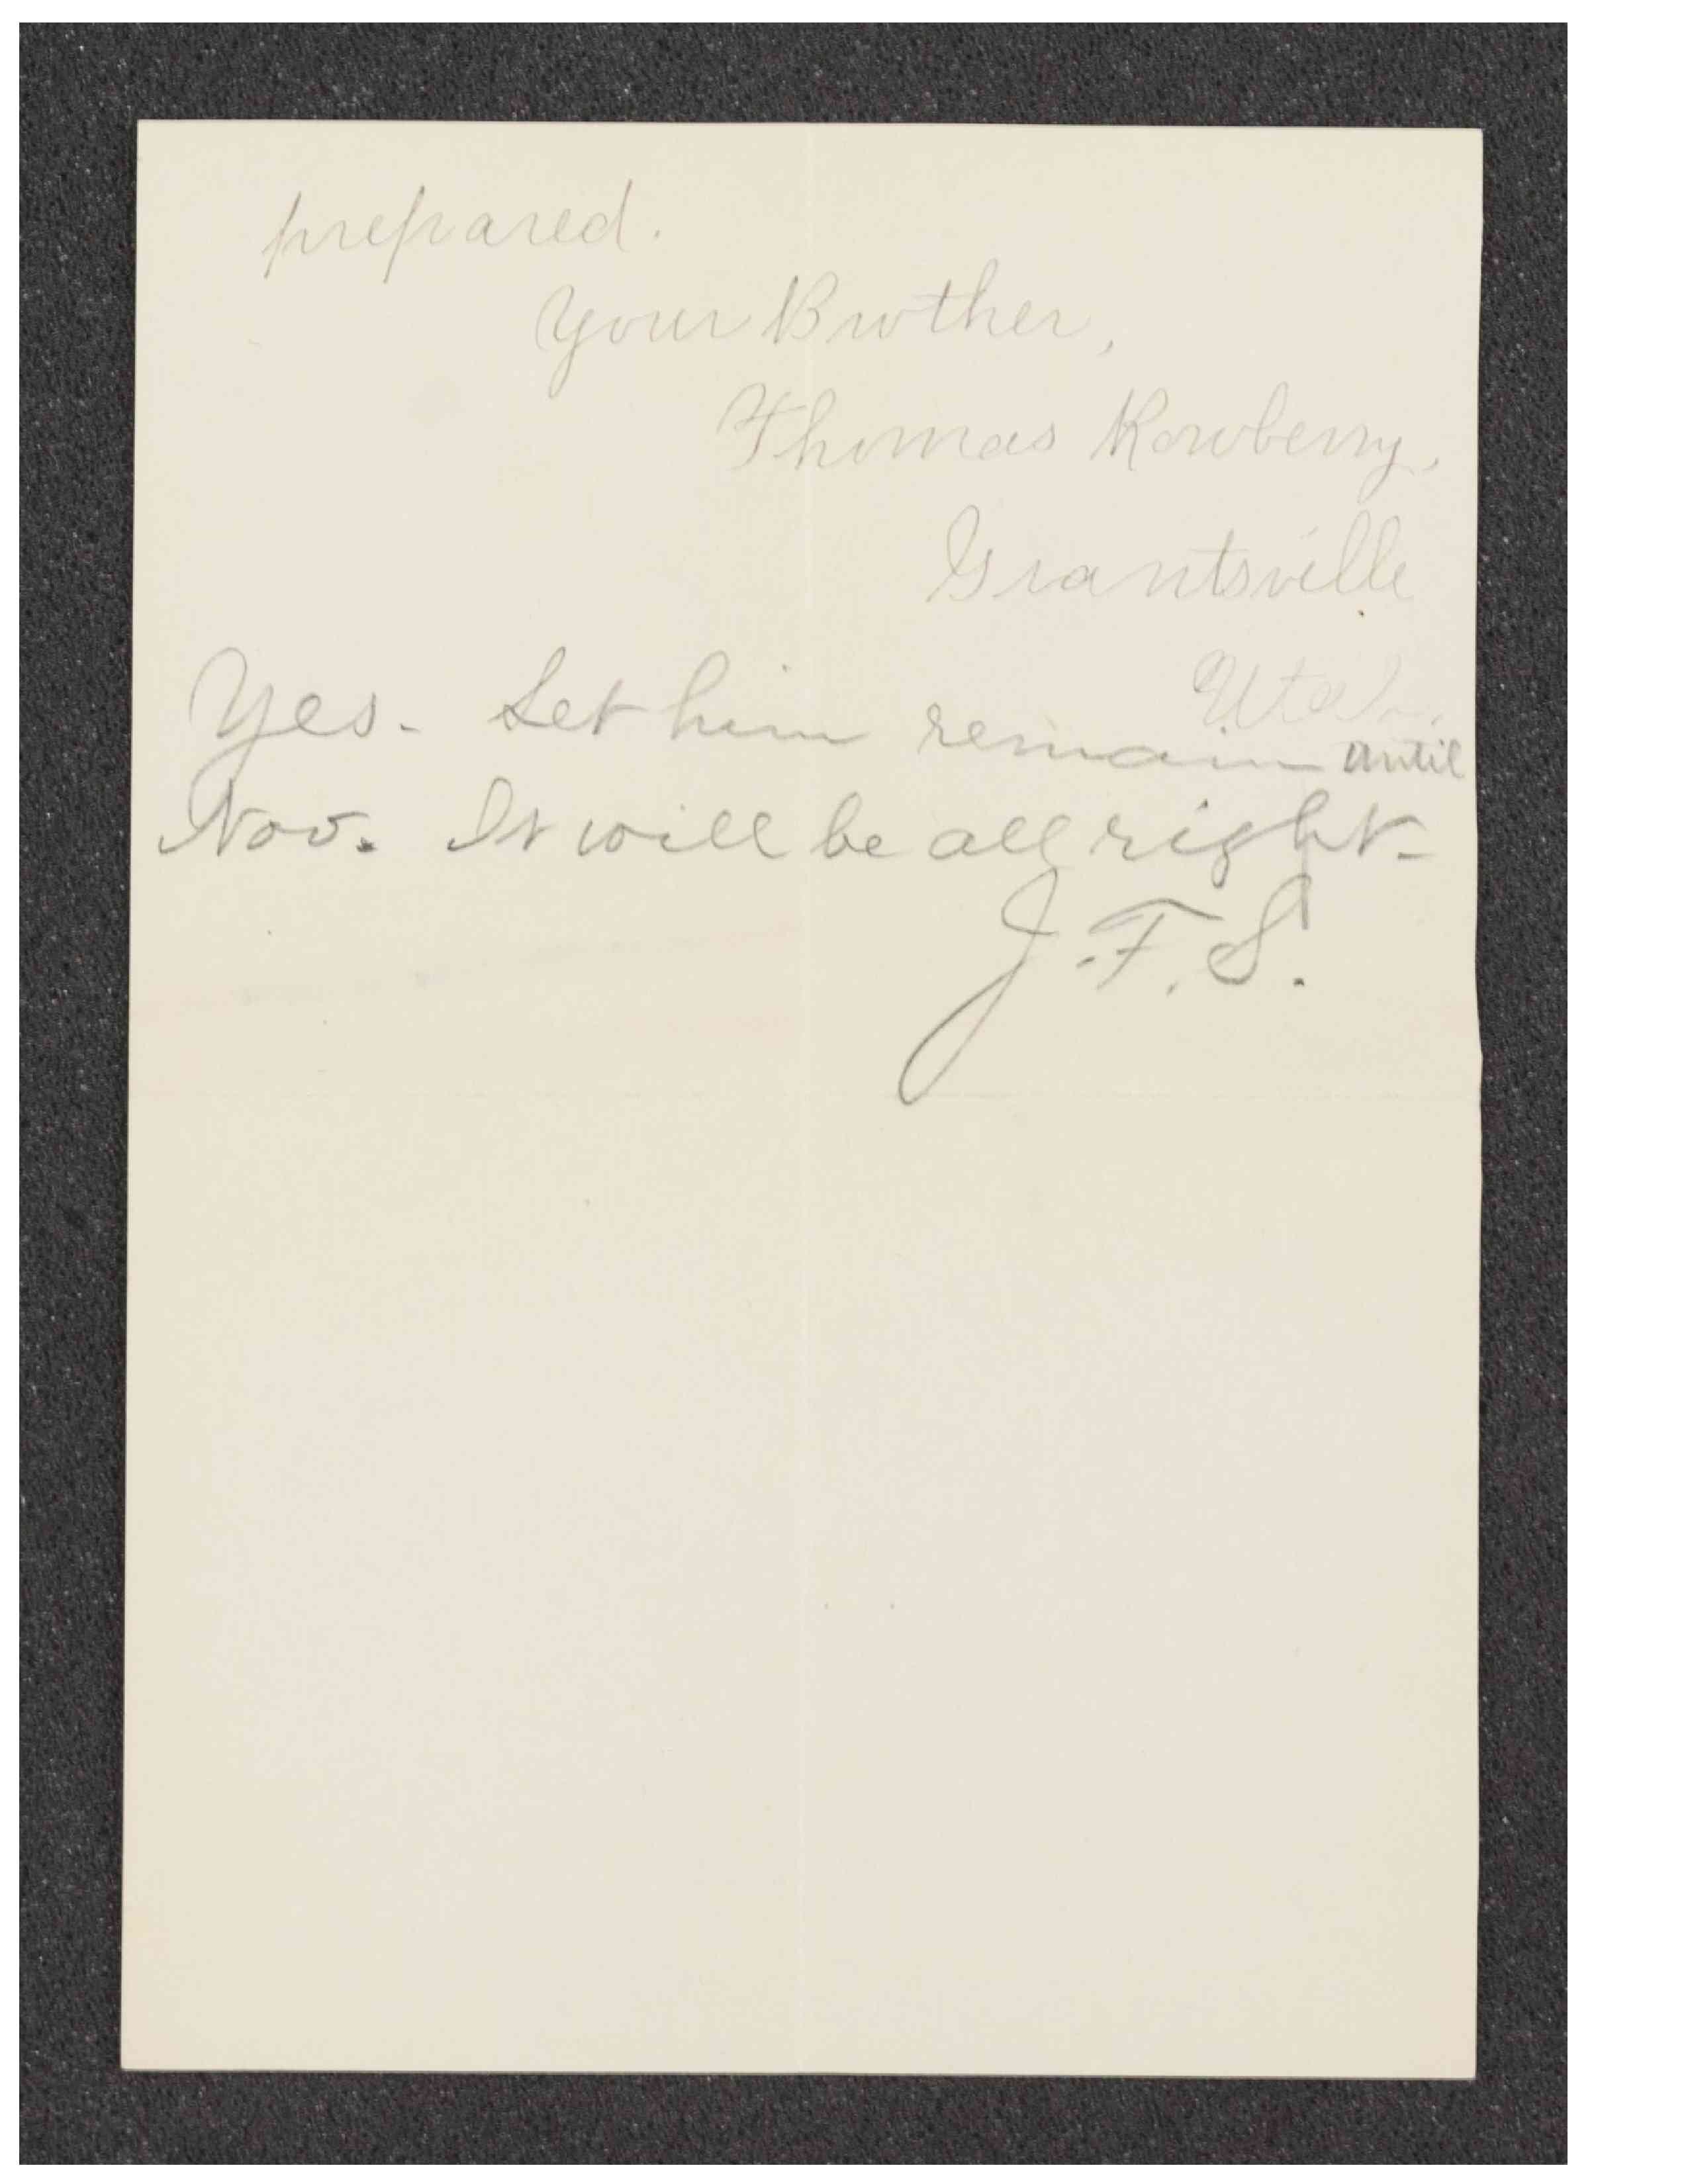 prepared.
Your Brother,
Thomas Rowberry,
Grantsville
Utah.
Yes. Let him remain until
Nov. It will be all right.
J.F.S.